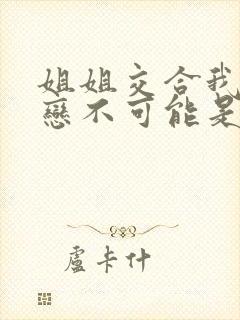 姐姐交合我
戀不可能是
盧卡什